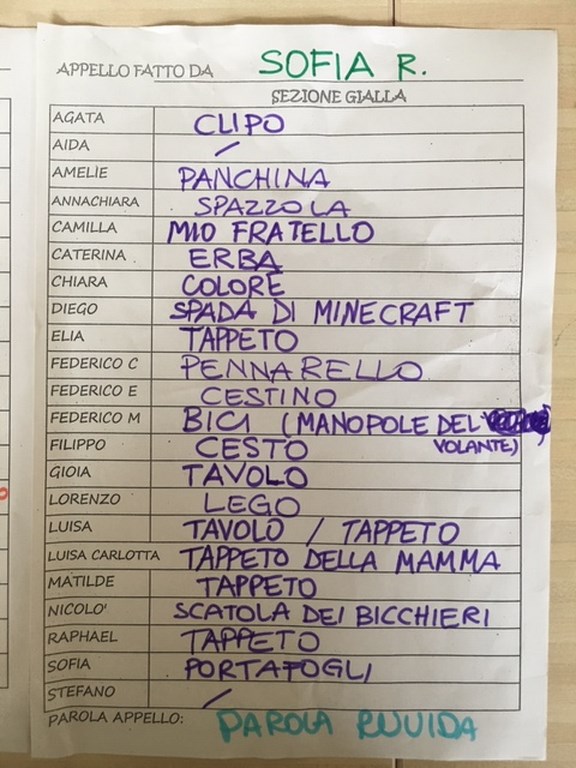 APPELLO FATTO DA SOFIA R.
SEZIONE GIALLA
AGATA CLIPO
AIDA /
AMELIE PANCHINA
ANNACHIARA SPAZZOLA
CAMILLA MIO FRATELLO
CATERINA ERBA
CHIARA COLORE
DIEGO SPADA DI MINECRAFT
ELIA TAPPETO
FEDERICO C PENNARELLO
FEDERICO E CESTINO
FEDERICO M BICI (MANOPOLE DEL
VOLANTE)
FILIPPO CESTO
GIOIA TAVOLO
LORENZO LEGO
LUISA TAVOLO / TAPPETO
LUISA CARLOTTA TAPPETO DELLA MAMMA
MATILDE TAPPETO
NICOLO' SCATOLA DEI BICCHIERI
RAPHAEL TAPPETO
SOFIA PORTAFOGLI
STEFANO /
PAROLA APPELLO: PAROLA RUVIDA